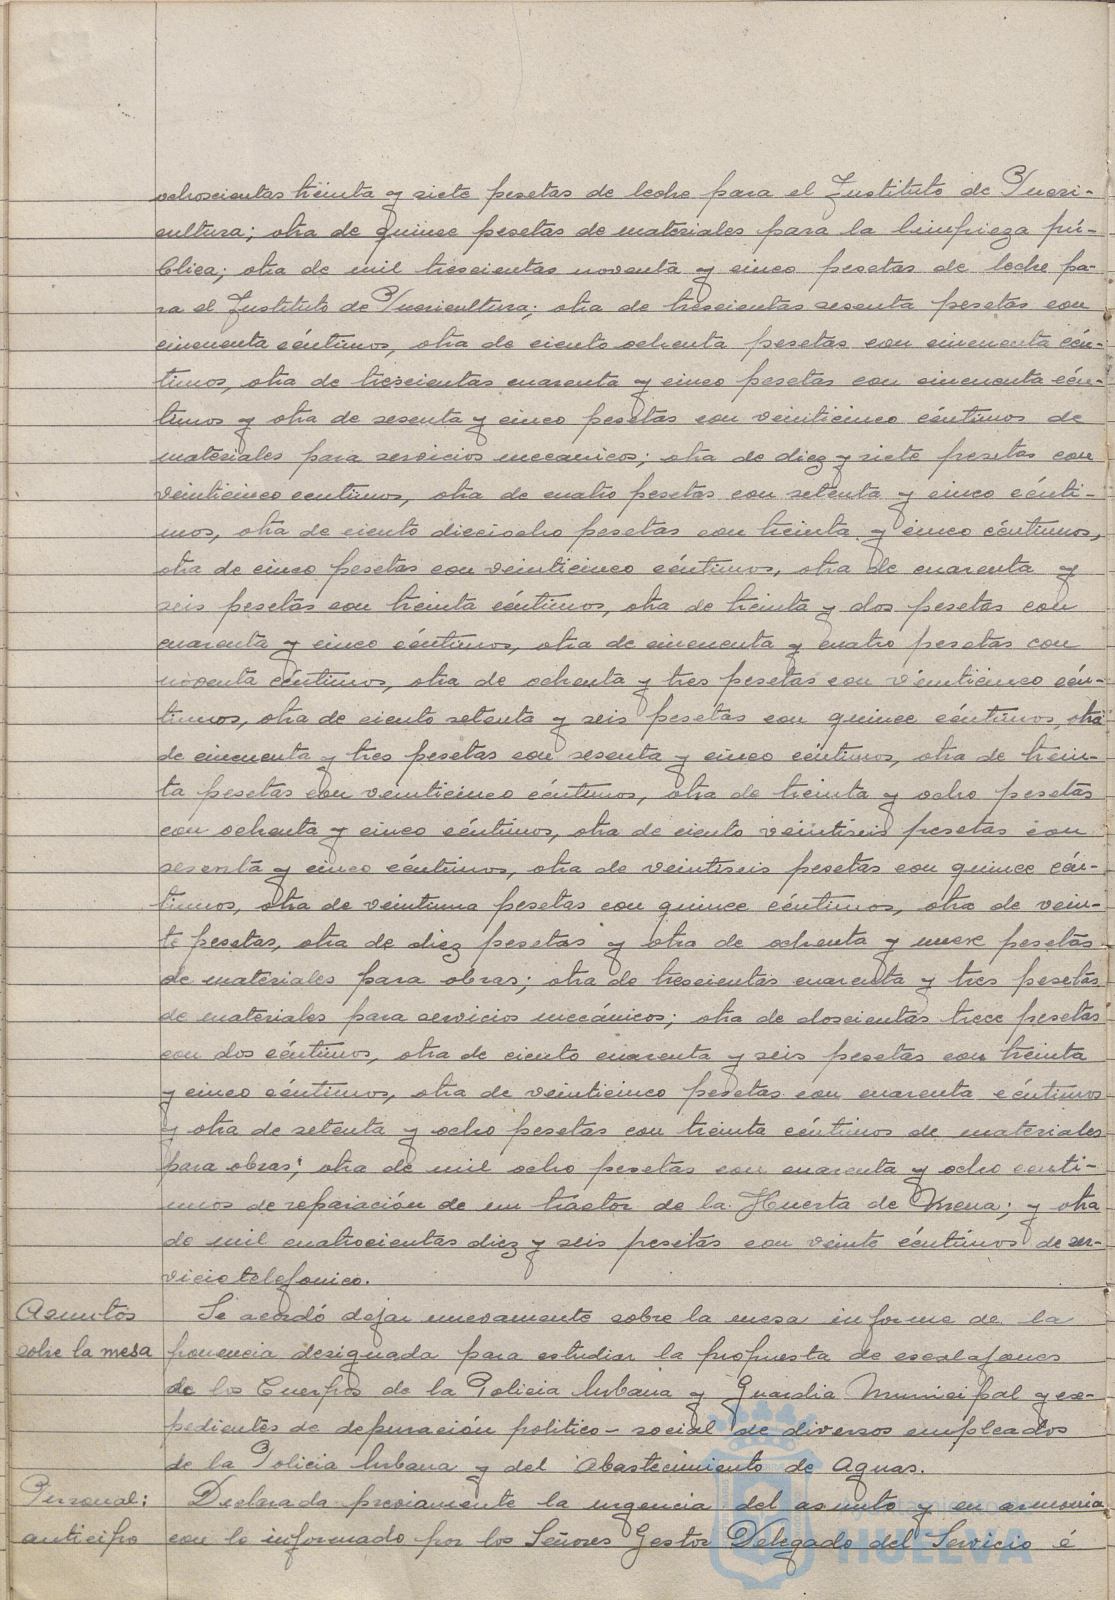 ochoscientas treinta y siete pesetas de leche para el Instituto de Pueri-
cultura; otra de quince pesetas de materiales para la limpieza pú-
blica; otra de mil trescientas noventa y cinco pesetas de leche pa-
ra el Instituto de Puericultura; otra de trescientas sesenta pesetas con
cincuenta céntimos, otra de ciento ochenta pesetas con cincuenta cén-
timos, otra de trescientas cuarenta y cinco pesetas con cincuenta cén-
timos y otra de sesenta y cinco pesetas con veinticinco céntimos de
materiales para servicios mecanicos; otra de diez y siete pesetas con
veinticinco centimos, otra de cuatro pesetas con setenta y cinco cénti-
mos, otra de ciento dieciocho pesetas con treinta y cinco céntimos,
otra de cinco pesetas con veinticinco céntimos, otra de cuarenta y
seis pesetas con treinta céntimos, otra de treinta y dos pesetas con
cuarenta y cinco céntimos, otra de cincuenta y cuatro pesetas con
noventa céntimos, otra de ochenta y tres pesetas con veinticinco cén-
timos, otra de ciento setenta y seis pesetas con quince céntimos, otra
de cincuenta y tres pesetas con sesenta y cinco céntimos, otra de trein-
ta pesetas con veinticinco céntimos, otra de treinta y ocho pesetas
con ochenta y cinco céntimos, otra de ciento veintiseis pesetas con
sesenta y cinco céntimos, otra de veintiseis pesetas con quince cén-
timos, otra de veintiuna pesetas con quince céntimos, otra de vein-
te pesetas, otra de diez pesetas y otra de ochenta y nueve pesetas
de materiales para obras; otra de trescientas cuarenta y tres pesetas
de materiales para servicios mecánicos; otra de doscientas trece pesetas
con dos céntimos, otra de ciento cuarenta y seis pesetas con treinta
y cinco céntimos, otra de veinticinco pesetas con cuarenta céntimos
y otra de setenta y ocho pesetas con treinta céntimos de materiales
para obras; otra de mil ocho pesetas con cuarenta y ocho centi-
mos de reparación de un tractor de la Huerta de Mena; y otra
de mil cuatrocientas diez y seis pesetas con veinte céntimos de ser-
vicio telefonico.
Asuntos sobre la mesa
Se acordó dejar nuevamente sobre la mesa informe de la
ponencia designada para estudiar la propuesta de escalafones
de los Cuerpos de la Policia Urbana y Guardia Municipal y ex-
pedientes de depuración politico-social de diversos empleados
de la Policia Urbana y del Abastecimiento de Aguas.
Personal: anticipo
Declarada previamente la urgencia del asunto y en armonia
con lo informado por los Señores Gestor Delegado del Servicio é
Ayuntamiento de
HUELVA